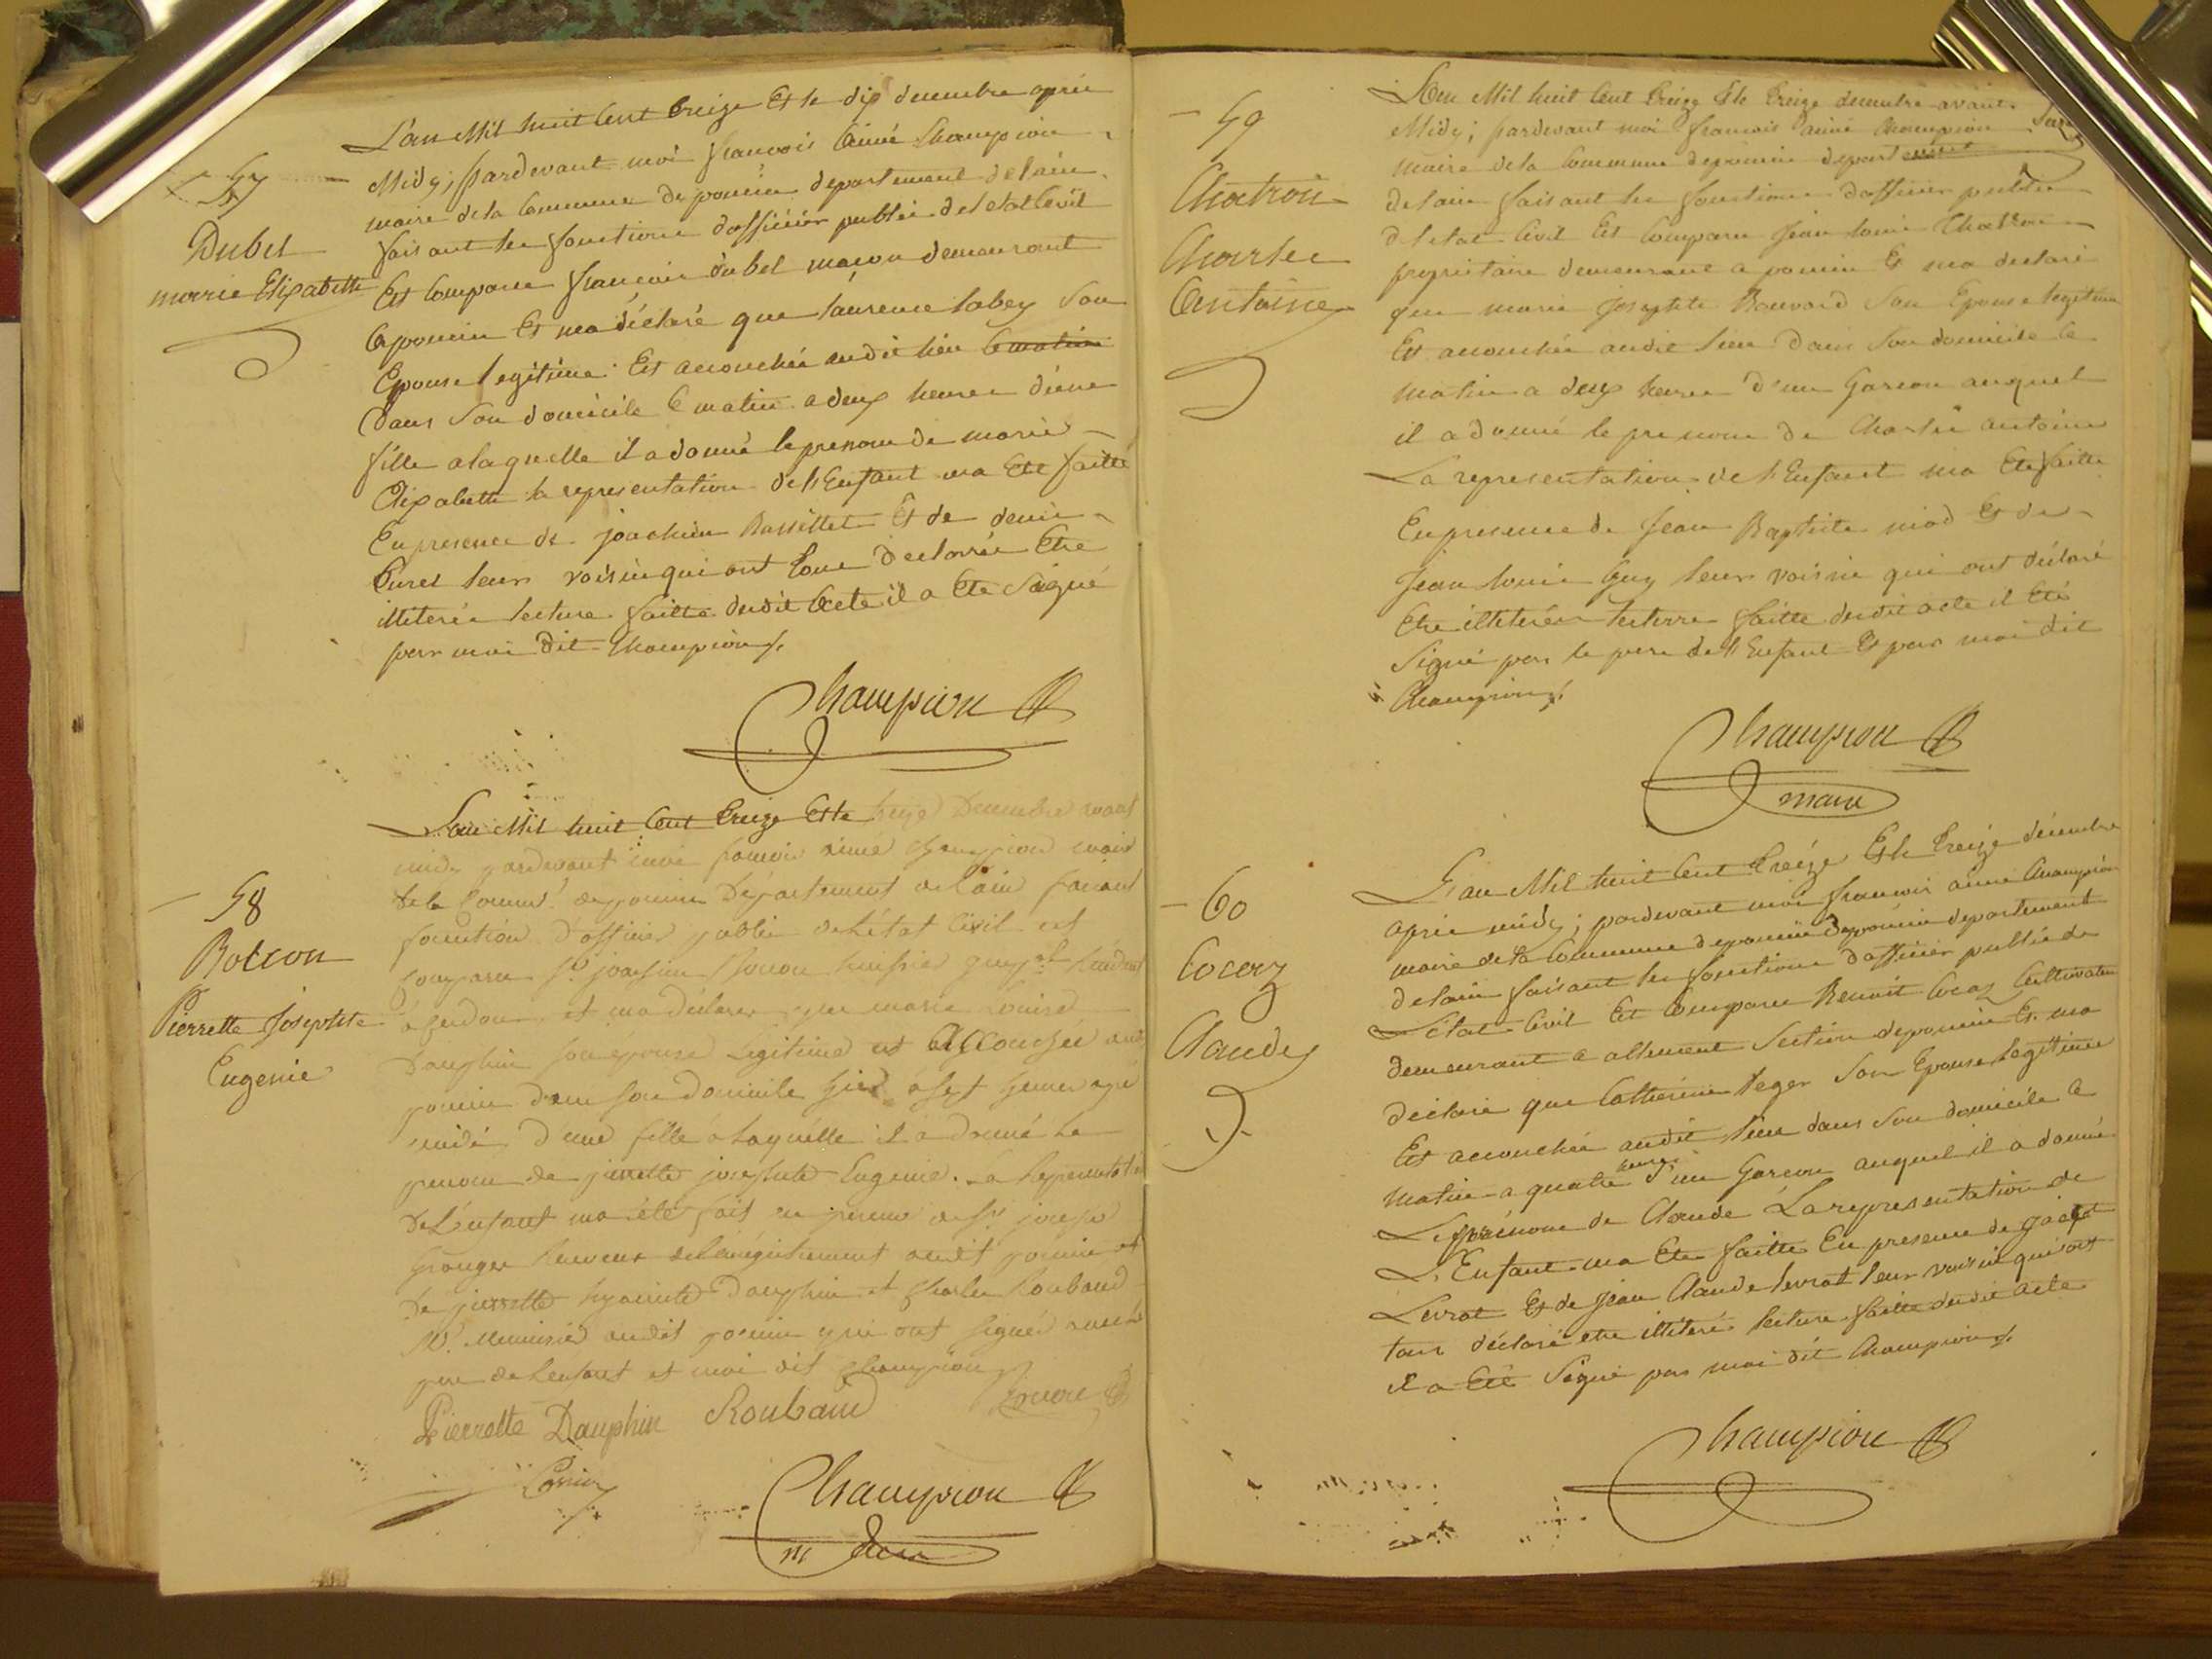 57
Dubel
marie Elizabette
L'an Mil huit Cent treize Et le dix decembre apres
Midy; pardevant moi francois Aimé Champion
maire dela Commune de poncin departement delain
faisant les fonctions dofficier public deletat Civil
Est Comparu francois dubel maçon demeurant
a poncin Et ma déclaré que laurence labey Son
Epouse legitime Est accouchée audit lieu Ce matin
Dans Son domicile le matin a deux heures d'une
fille alaquelle il a donné le prenom de marie
Elizabette la representation de l'Enfant ma Eté faitte
En presence de joachim Bassillet Et de denis
Curet leurs voisin qui ont tous declarée Etre
illiterée lecture faitte dudit acte il a Eté Signé
par moi dit Champion
Champion
58
Botcon
Pierrette Josephte
Eugenie
L'an Mil huit Cent treize Et le treize Decembre avant
midy pardevant moi francois aimé Champion maire
de la Commune de poncin Département de l'ain faisant
fonction d'officier public de l'état Civil est
comparu Sr joachim huissier
et ma déclaré que marie Louise
Dauphin son epouse Legitime est accouchée audit
poncin dans son Domicile hier à sept heures après
midi D'une fille à Laquelle il a Donné Le
prenom de pierrette josephte Eugenie. La Representation
De L'enfant m'a été fait en presence de Sr joseph
Receveur de l'enregistrement audit poncin et
De pierrette hyacinte Dauphin et Charles Roubaud
audit poncin qui ont signés avec le
pere de Lenfant et moi dit Champion
Pierrette Dauphin Roubaud
Champion
59
Chatron
Charles
Antoine
L'an Mil huit Cent treize Et le treize decembre avant
Midy; pardevant moi francois aimé Champion
maire dela Commune deponcin departement
delain faisant les fonctions dofficier public
deletat Civil Est Comparu Jean louis Chatron
proprietaire demeurant a poncin Et ma declaré
que marie josephte Bouvard Son Epouse legitime
Est accouchée audit lieu Dans Son domicile le
matin a deux heures d'un Garcon auquel
il a donné le prenom de Charles antoine
La representation de l'Enfant ma Eté faitte
En presence de Jean Baptiste niod Et de
Jean louis Guy leurs voisin qui ont déclaré
Etre illiterés lecture faitte dudit acte il Eté
Signé par le pere de l'Enfant Et par moi dit
Champion
Champion
maire
60
Cocaz
Claude
L'an Mil huit Cent treize Et le treize décembre
après midy; pardevant moi francois aimé Champion
maire dela Commune deponcin deponcin departement
delain faisant les fonctions dofficier public de
L'état Civil Est Comparu Benoit Cocaz Cultivateur
demeurant a allement Section deponcin Et ma
déclaré que Catherine leger Son Epouse legitime
Est accouchée audit lieu dans Son domicile le
matin a quatre heures d'un Garcon auquel il a donné
Le prénom de Claude La representation de
L'Enfant ma Eté faitte En presence de
Levrat Et de Jean Claude levrat leur voisin qui ont
tous déclaré etre illiteré lecture faitte dudit acte
il a Eté Signé par moi dit Champion
Champion